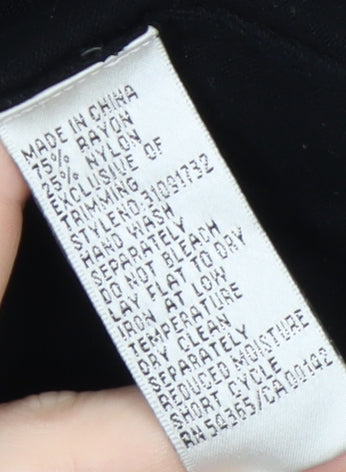 MADE IN CHINA
75% RAYON
25% NYLON
EXCLUSIVE OF
TRIMMING
STYLENO.31091732
HAND WASH
SEPARATELY
DO NOT BLEACH
LAY FLAT TO DRY
IRON AT LOW
TEMPERATURE
DRY CLEAN
SEPARATELY
REDUCED MOISTURE
SHORT CYCLE
RN54365/CA00142